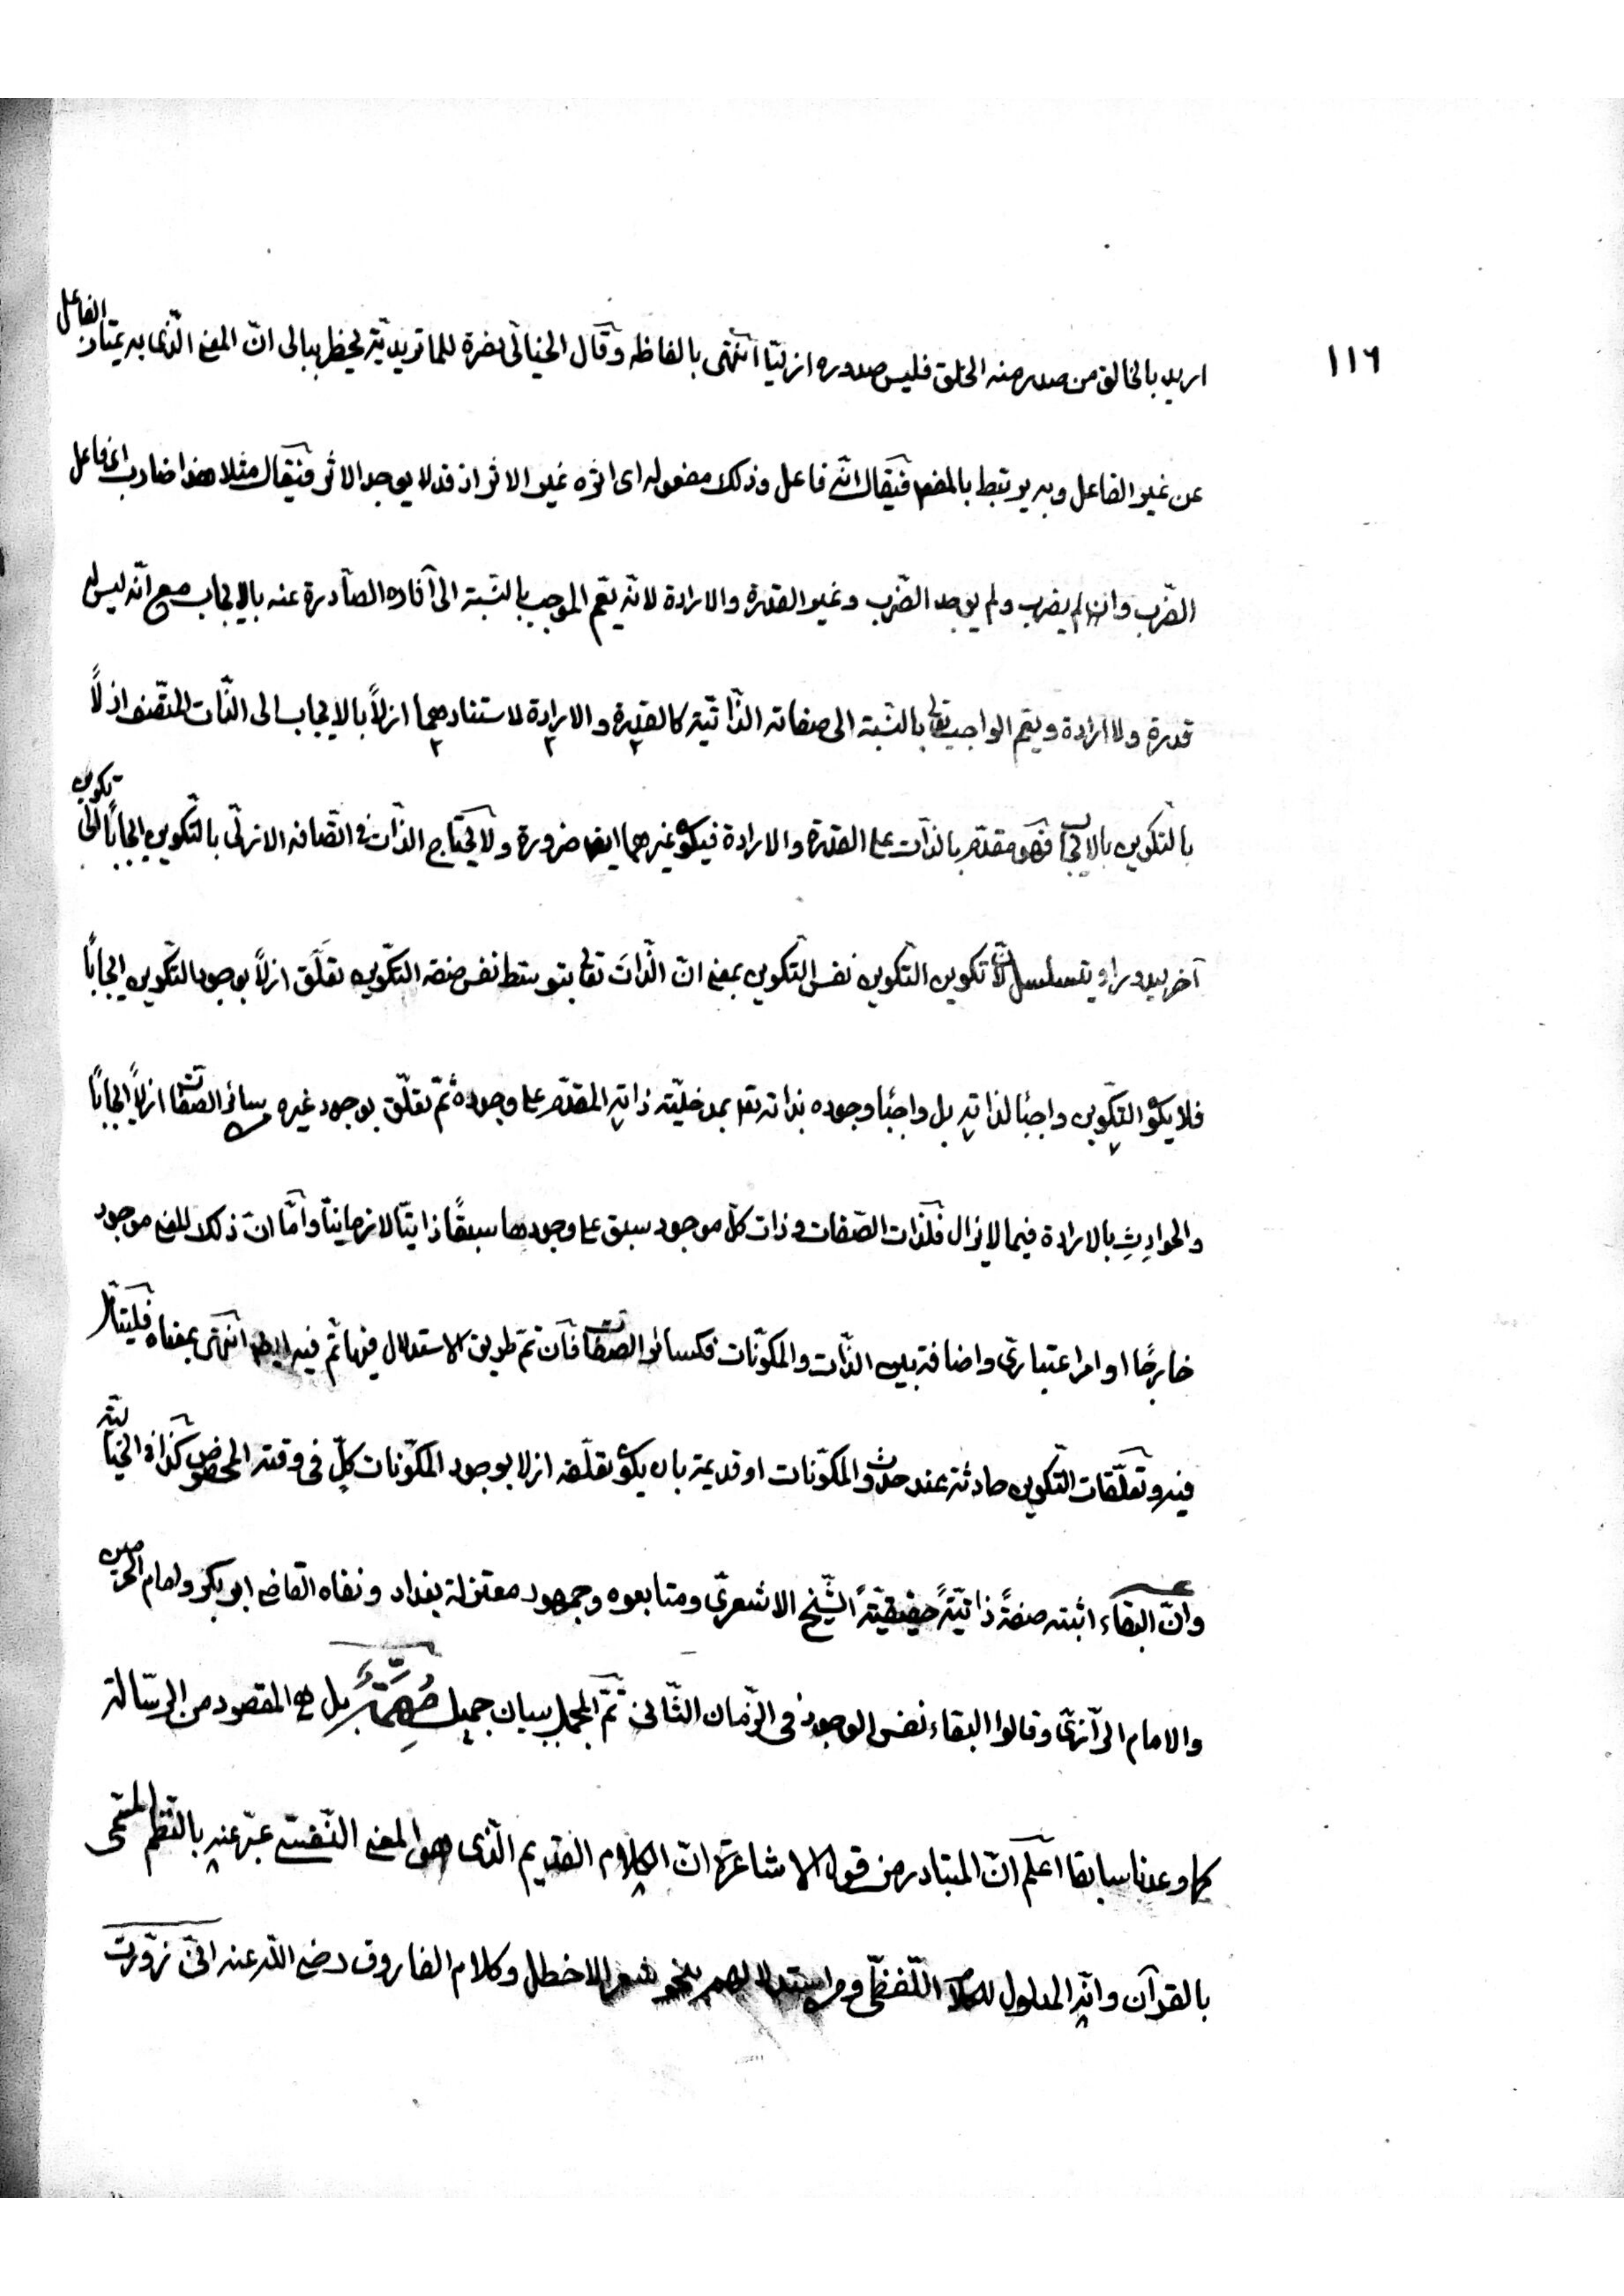 ١١٦
اريد بالخالق من صدر منه الخلق فليس صدوره ازليّا انتهى بالفاظه وقال الخيالى نصرة للماتريديّة يخطر ببالى انّ المعنى الّذى به يمتاز الفاعل
عن غير الفاعل وبه يرتبط بالمفعول فيقال انّه فاعل وذلك مفعوله اى اثره غير الاثر اذ قد لا يوجد الاثر فيقال مثلا هذا ضارب اى فاعل
الضّرب وان لم يضرب ولم يوجد الضّرب وغير القدرة والارادة لانّه يعمّ الموجب بالنّسبة الى آثاره الصّادرة عنه بالايجاب مع انّه ليس له
قدرة ولا ارادة ويعمّ الواجب تعالى بالنّسبة الى صفاته الذّاتيّة كالقدرة والارادة لاستنادهما ازلاً بالايجاب الى الذّات المتّصف ازلاً
بالتكوين بالايجاب فهو مقدّم بالذّات على القدرة والارادة فيكون غيرهما ايضا ضرورة ولا يحتاج الذّات فى اتّصافه الازلىّ بالتّكوين ايجابًا الى تكوين
آخر ليدور او يتسلسل لانّ تكوين التكوين نفس التّكوين بمعنى انّ الذّات تعالى بتوسّط نفس صفة التكوين تعلّق ازلاً بوجود التكوين ايجابًا
فلا يكون التكوين واجبًا لذاته بل واجبًا وجوده بذاته تعالى بمدخليّة ذاته المقدّم على وجوده ثمّ تعلّق بوجود غيره من سائر الصّفات ازلاً ايجابًا
والحوادث بالارادة فيما لا يزال فلذات الصّفات وذات كلّ موجود سبق على وجودها سبقًا ذاتيّا لا زمانيّا وامّا انّ ذلك المعنى موجود
خارجًا او امر اعتبارىّ واضافة بين الذّات والمكوّنات فكسائر الصّفات فان تمّ طريق الاستدلال فيها تمّ فيه ايضا انتهى بمعناه فليتأمّل
فيه وتعلّقات التّكوين حادثة عند حدوث المكوّنات او قديمة بان يكون تعلّقه ازلا بوجود المكوّنات كلّ فى وقته المخصوص كذا فى الخياليّة
وانّ البقاء اثبته صفةً ذاتيّةً حقيقيّةً الشّيخ الاشعرىّ ومتابعوه وجمهور معتزلة بغداد ونفاه القاضى ابو بكر وامام الحرمين
والامام الرّازىّ وقالوا البقاء نفس الوجود فى الزّمان الثّانى تمّ المجمل ببيان جميل مُهِمَّةٌ بل هى المقصود من الرّسالة
كما وعدنا سابقا اعلم انّ المتبادر من قول الاشاعرة انّ الكلام القديم الّذى هو المعنى النّفسىّ عبّر عنه بالنّظم المسمّى
بالقرآن وانّه المدلول للكلام اللّفظىّ ومن استدلالهم بنحو شعر الاخطل وكلام الفاروق رضى الله عنه انّى زوّرت